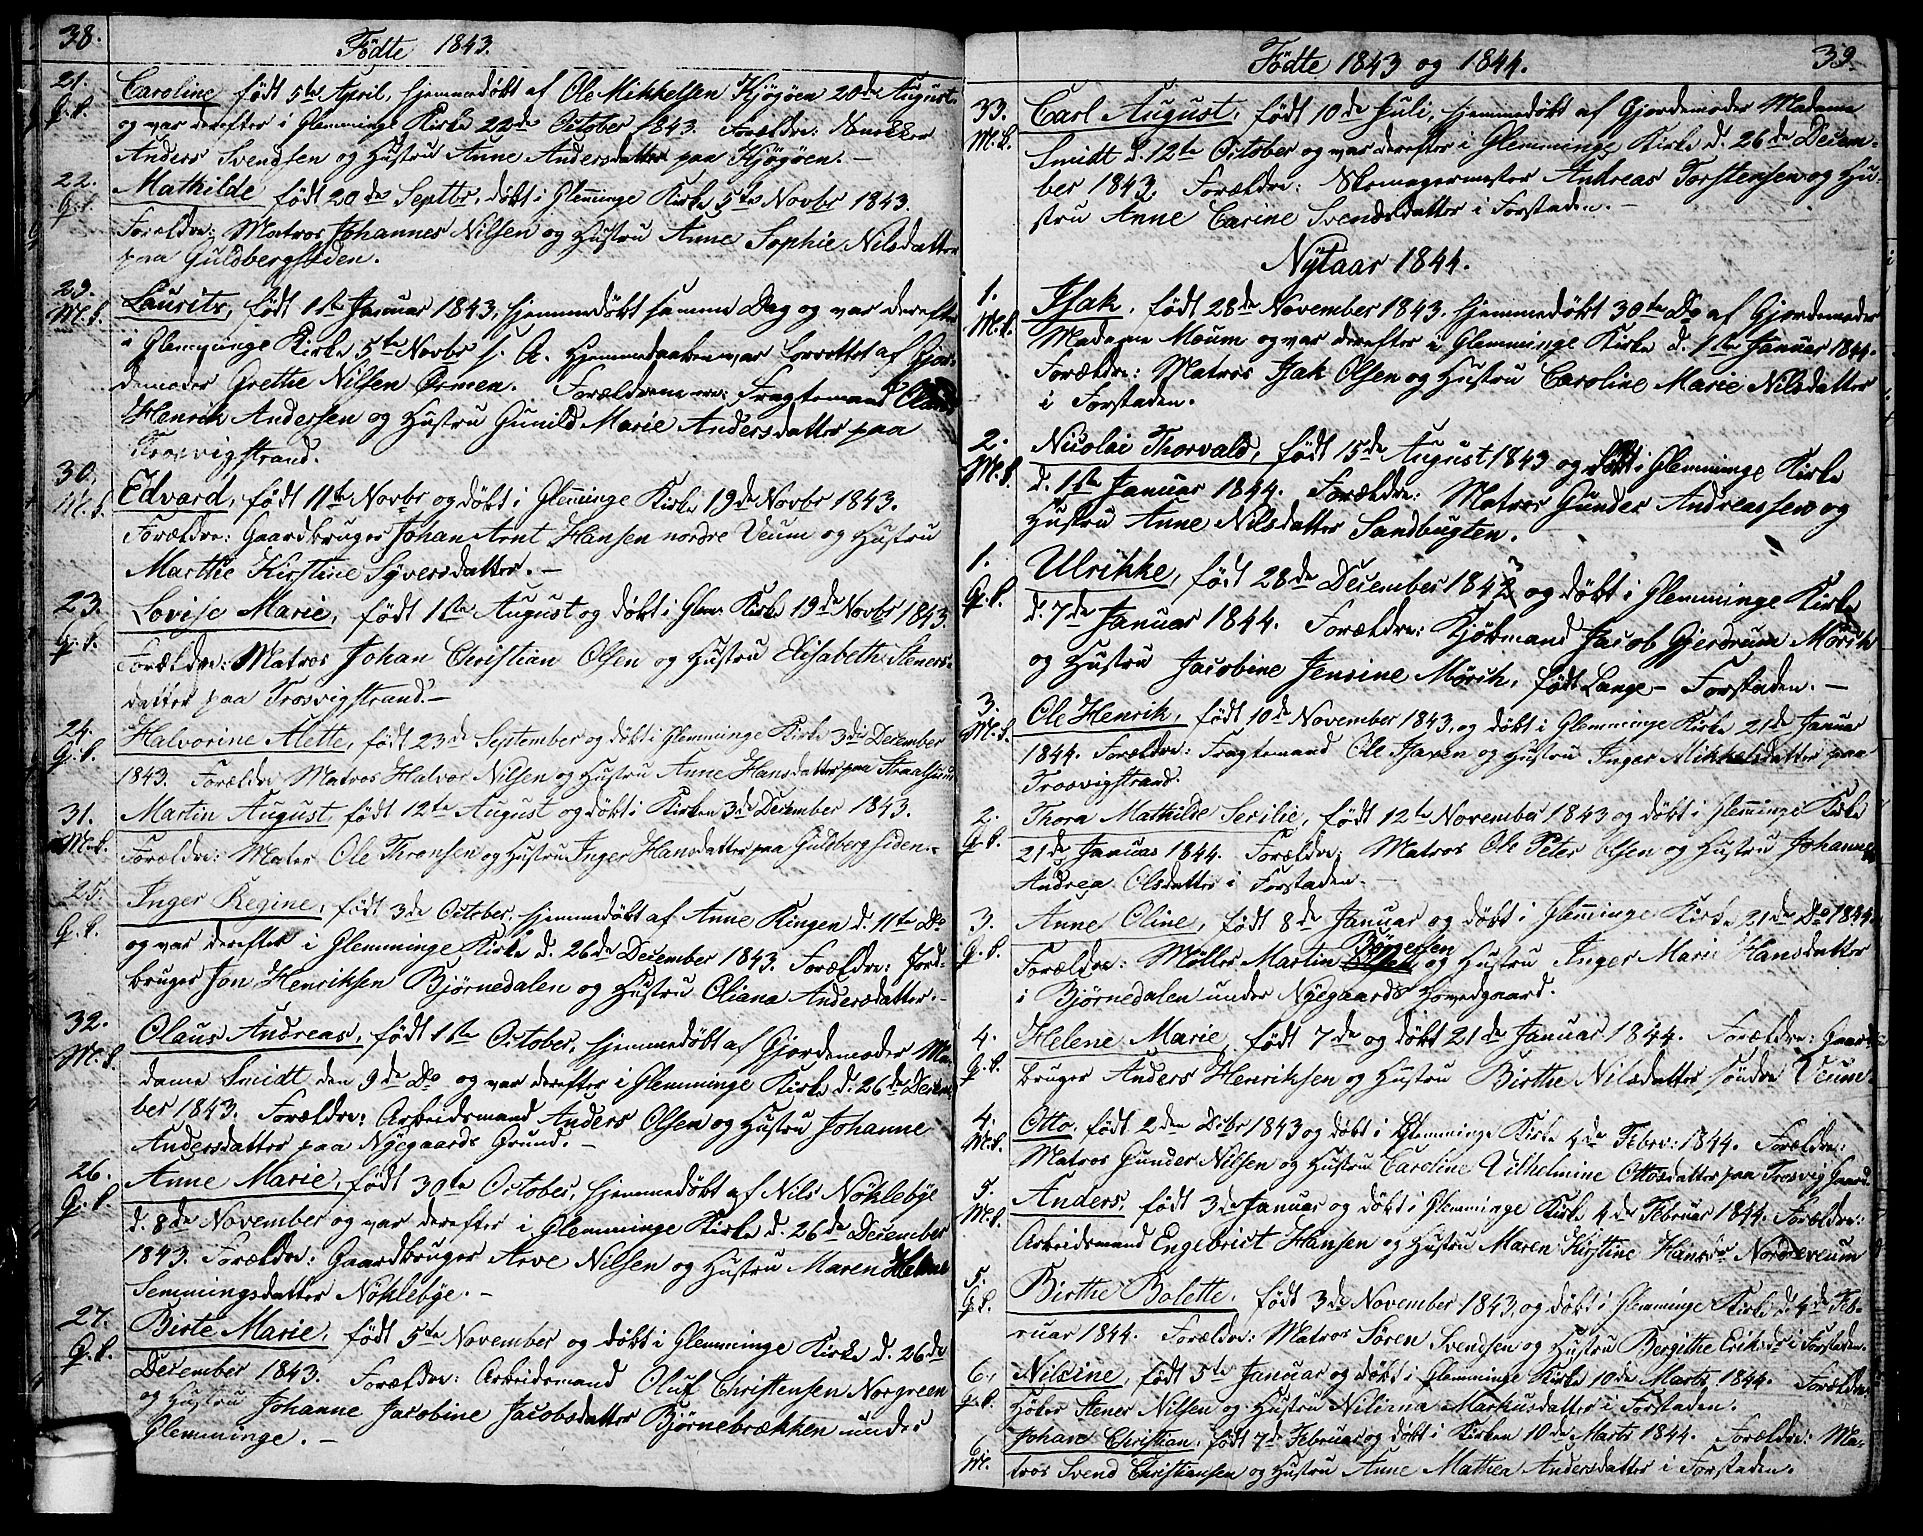 38.
Födte 1843.
21. Caroline, födt 5te April, hjemmedöbt af Ole Mikkelsen Kjøgøen 20de August
Q. k. og var derefter i Glemminge Kirke 22de October 1843. Forældre:
Anders Svendsen og Hustru Anne Andersdatter paa Kjøgøen. –
22. Mathilde, födt 20de Septbr, döbt i Glem̄inge Kirke 5te Novbr 1843.
Forældre: Matros Johannes Nilsen og Hustru Anne Sophie Nilsdatter
paa Guldbergsiden.
29. Laurits, födt 1ste Januar 1843, hjemmedöbt samme Dag og var derefter
i Glemminge Kirke 5te Novbr s. A. Hjemmedaaben var forrettet af Gjor-
demoder Grethe Nilsen Ørmen. Forældrene ere: Fragtemand
Henrik Andersen og Hustru Gunild Marie Andersdatter paa
Trosvigstrand.
30. Edvard, födt 11te Novbr og döbt i Glem̄inge Kirke 19de Novbr 1843.
Forældre: Gaardbruger Johan Arnt Hansen nordre Veum og Hustru
Marthe Kirstine Syversdatter. –
23. Lovise Marie, födt 1ste August og döbt i Glem. Kirke 19de Novbr 1843.
Forældre: Matros Johan Christian Olsen og Hustru Elisabeth Steners-
datter paa Trosvigstrand. –
24. Halvorine Alette, födt 23de September og döbt i Glemminge Kirke 3die December
1843. Forældre Matros Halvor Nilsen og Hustru Anne Hansdatter paa
31. Martin August, födt 12te August og döbt i Kirken 3die December 1843.
Forældre: Matros Ole Thronsen og Hustru Inger Hansdatter paa Guldbergsiden. –
25. Inger Regine, födt 3de October, hjemmedöbt af Anne Ringen d. 11te Do
og var derefter i Glemminge Kirke d. 26de December 1843. Forældre: Jord-
bruger Jon Henriksen Bjørnedalen og Hustru Oliana Andersdatter. –
32. Olaus Andreas, födt 1ste October, hjemmedöbt af Gjordemoder Ma-
dame Smidt den 9de Do og var derefter i Glemminge Kirke d. 26de Decem-
ber 1843. Forældre: Arbeidsmand Anders Olsen og Hustru Johanne
Andersdatter paa Nyegaards Grund. –
26. Anne Marie, födt 30te October, hjemmedöbt af Nils Nöklebye
d. 8de November og var derefter i Glemminge Kirke d. 26de December
1843. Forældre: Gaardbruger Arve Nilsen og Hustru Maren Helene
Semmingsdatter Nöklebye. –
27. Birte Marie, födt 5te November og döbt i Glemminge Kirke d. 26de
December 1843. Forældre: Arbeidsmand Oluf Christensen Norgreen
og Hustru Johanne Jacobine Jacobsdatter Bjørnebrækken under
Glemminge. –
Födte 1843 og 1844.
39.
33. Carl August, födt 10de Juli, hjemmedöbt af Gjordemoder Madame
M. k. Smidt d. 12te October og var derefter i Glemminge Kirke d. 26de Decem-
ber 1843. Forældre: Skomagermester Andreas Torstensen og Hu-
stru Anne Carine Svendsdatter i Forstaden. –
Nytaar 1844.
1. Isak, födt 28de November 1843, hjemmedöbt 30te Do af Gjordemoder
M. k. Madame Moum og var derefter i Glemminge Kirke d. 1ste Januar 1844.
Forældre: Matros Isak Olsen og Hustru Caroline Marie Nilsdatter
i Forstaden.
2. Nicolai Thorvald, födt 15de August 1843 og döbt i Glemminge Kirke
M. k. d. 1ste Januar 1844. Forældre: Matros Gunder Andreassen og
Hustru Anne Nilsdatter Sandbugten.
1. Ulrikke, födt 28de December 1843 og döbt i Glemminge Kirke
d. 7de Januar 1844. Forældre: Kjöbmand Jacob Gjerdrum Mörch
og Hustru Jacobine Jensine Mörch, födt Lange – Forstaden. –
3. Ole Henrik, födt 10de November 1843, og döbt i Glemminge Kirke 21de Januar
M. k. 1844. Forældre: Fragtemand Ole Isaxen og Hustru Inger Mikkelsdatter paa
Trosvigstrand.
2. Thora Mathilde Secilie, födt 12te November 1843 og döbt i Glem̄inge Kirke
21de Januar 1844. Forældre: Matros Ole Peter Olsen og Hustru Johanne
Andrea Olsdatter i Forstaden. –
3. Anne Oline, födt 8de Januar og döbt i Glem̄inge Kirke 21de Do 1844.
Forældre: Møller Martin Børgersen og Hustru Inger Marie Hansdatter
i Bjørnedalen under Nyegaards Hovedgaard.
4. Helene Marie, födt 7de og döbt 21de Januar 1844. Forældre: Gaard-
bruger Anders Henriksen og Hustru Birthe Nilsdatter söndre Veum.
4. Otto, födt 2den Decbr 1843 og döbt i Glemminge Kirke 4de Febru: 1844. Forældre:
M. k. Matros Gunder Nilsen og Hustru Caroline Vilhelmine Ottosdatter paa Trosvig Gaard.
5. Anders, födt 3de Januar og döbt i Glemminge Kirke 4de Februar 1844. Forældre:
M. k. Arbeidsmand Engebrict Hansen og Hustru Maren Kirstine Hansdr Nordreveum
5. Birthe Bolette, födt 3de November 1843, og döbt i Glemminge Kirke d. 4de Feb-
ruar 1844. Forældre: Matros Sören Svendsen og Hustru Bergithe Eriksdr i Forstaden.
6. Nilsine, födt 5te Januar og döbt i Glemminge Kirke 10de Marts 1844. Forældre:
Stener Nilsen og Hustru Niliana Markusdatter i Forstaden.
6. Johan Christian, födt 7de Februar og döbt i Kirken 10de Marts 1844. Forældre: Ma-
M. tros Svend Christiansen og Hustru Anne Mathea Andersdatter i Forstaden.